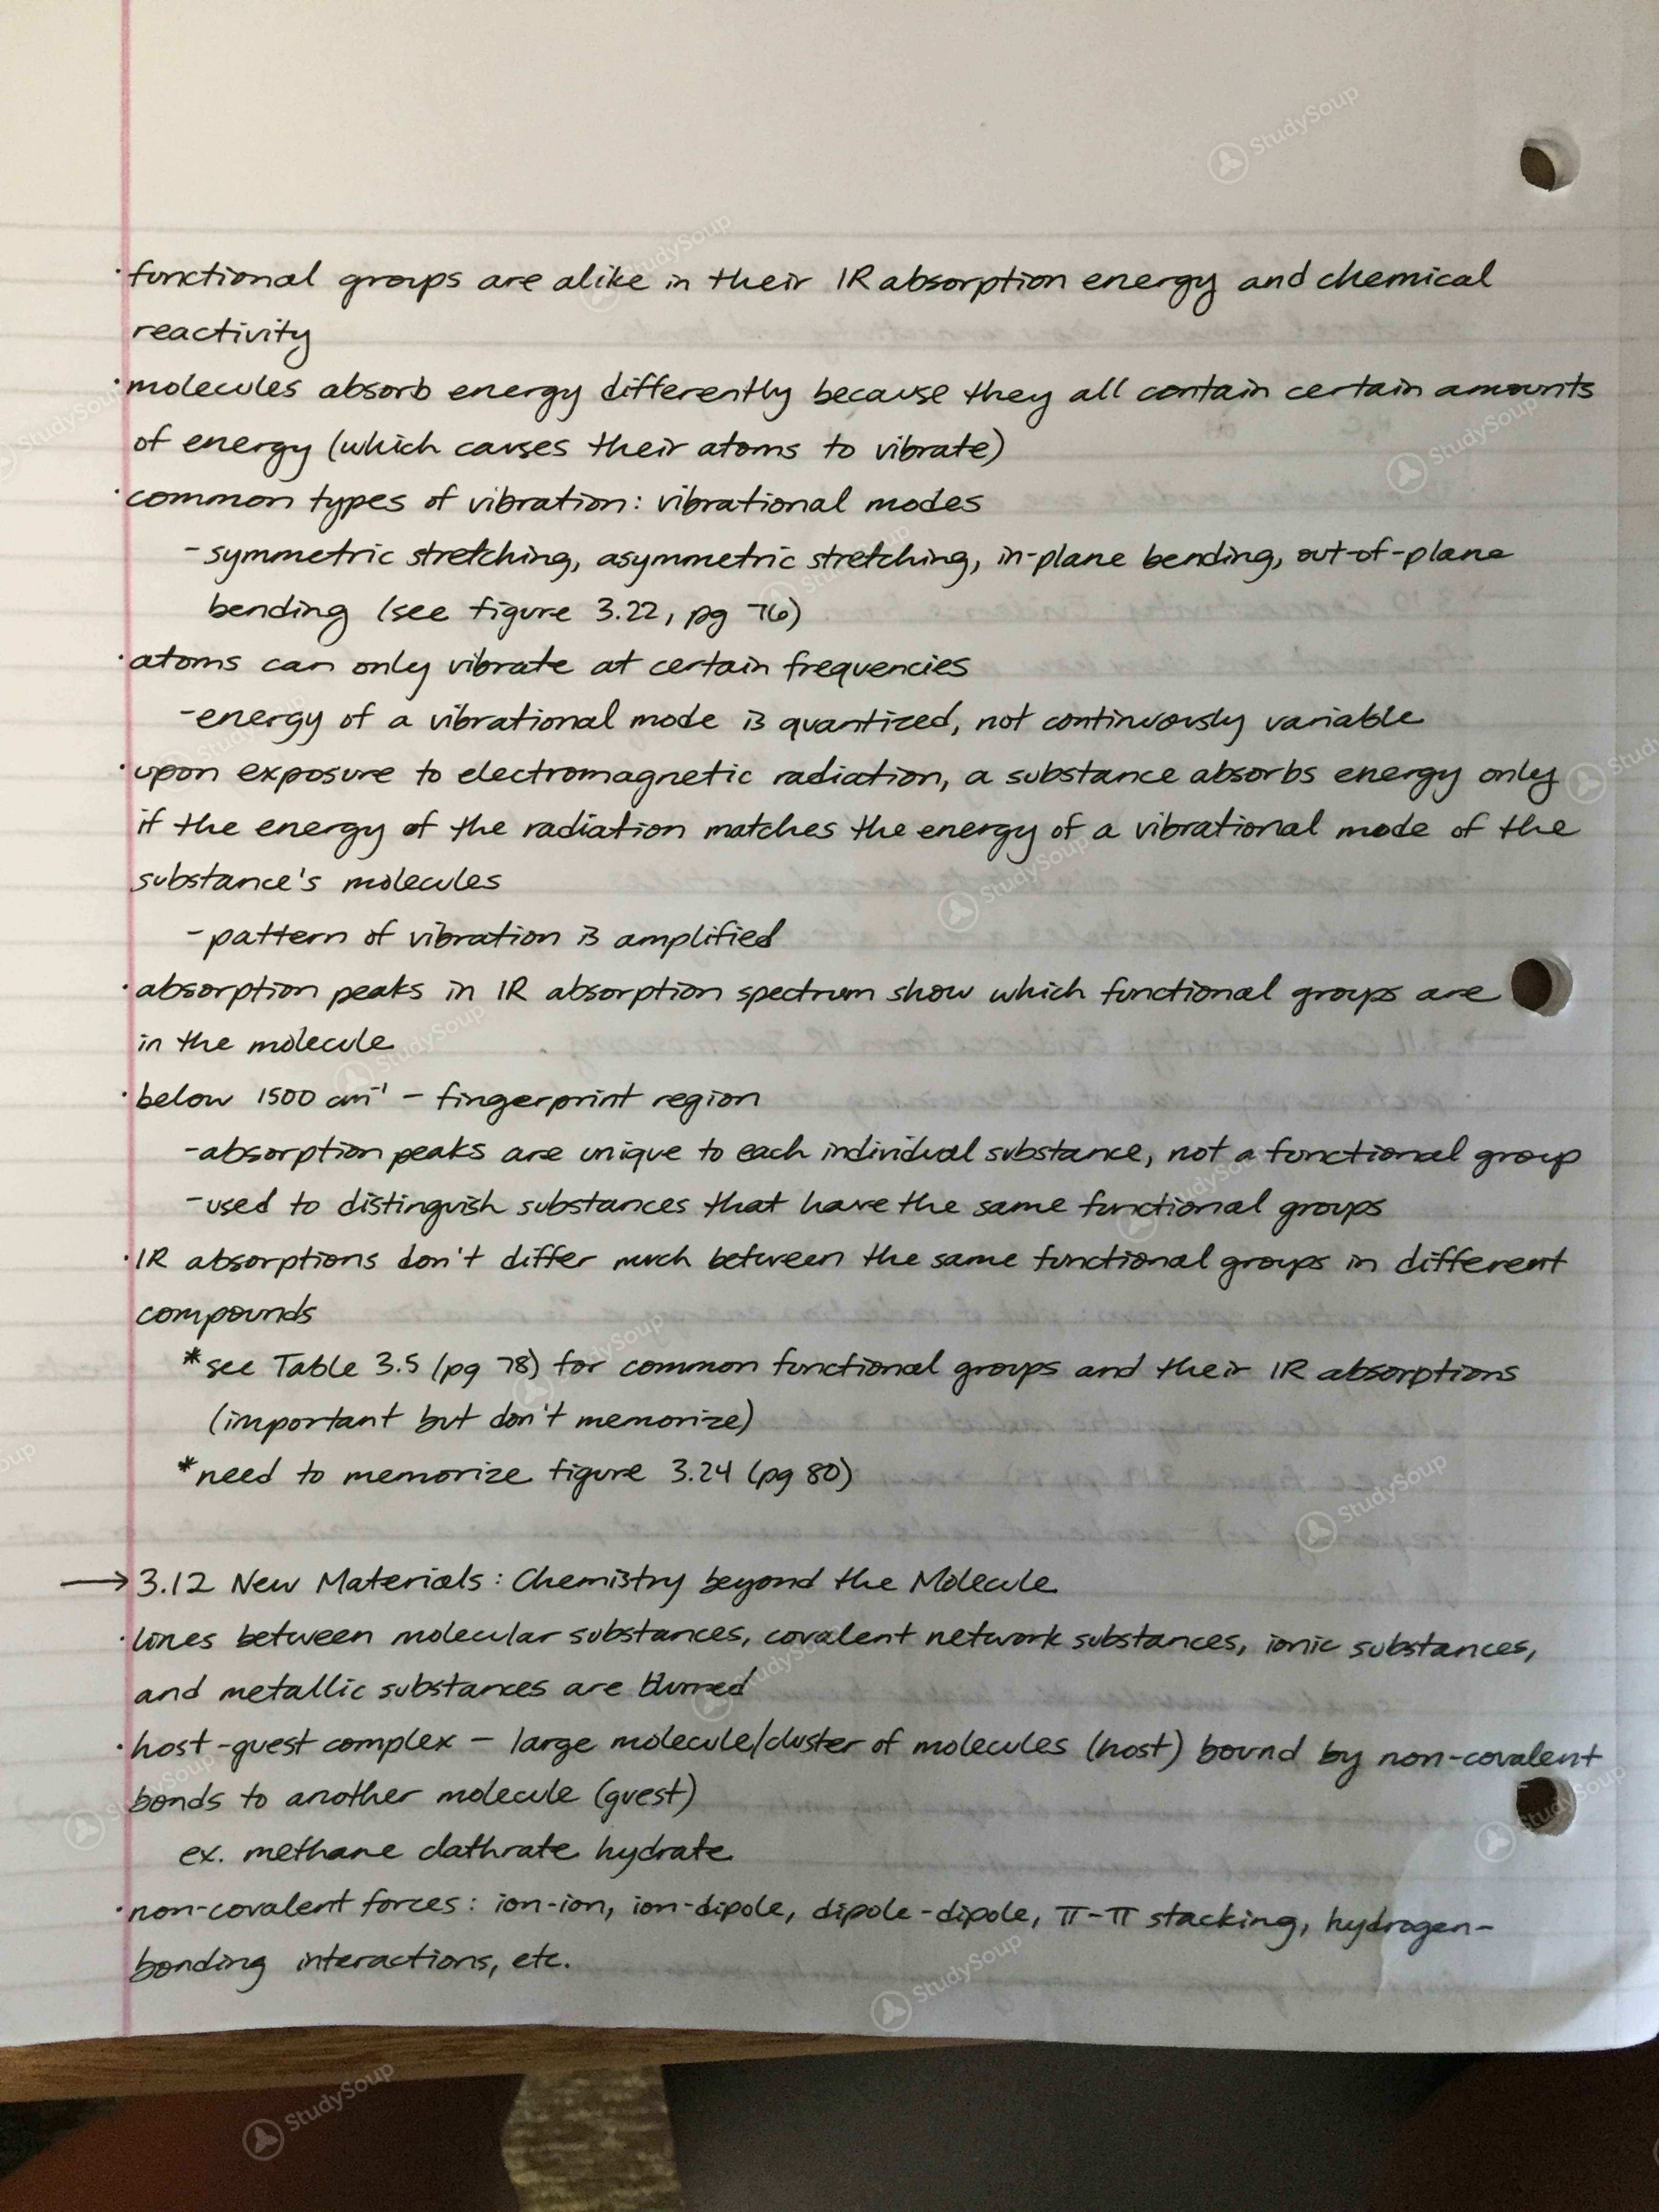 · functional groups are alike in their IR absorption energy and chemical
reactivity
· molecules absorb energy differently because they all contain certain amounts
of energy (which causes their atoms to vibrate)
· common types of vibration: vibrational modes
- symmetric stretching, asymmetric stretching, in-plane bending, out-of-plane
bending (see figure 3.22, pg 76)
· atoms can only vibrate at certain frequencies
- energy of a vibrational mode is quantized, not continuously variable
· upon exposure to electromagnetic radiation, a substance absorbs energy only
if the energy of the radiation matches the energy of a vibrational mode of the
substance's molecules
- pattern of vibration is amplified
· absorption peaks in IR absorption spectrum show which functional groups are
in the molecule
· below 1500 cm⁻¹ - fingerprint region
- absorption peaks are unique to each individual substance, not a functional group
- used to distinguish substances that have the same functional groups
· IR absorptions don't differ much between the same functional groups in different
compounds
* see Table 3.5 (pg 78) for common functional groups and their IR absorptions
(important but don't memorize)
* need to memorize figure 3.24 (pg 80)
→ 3.12 New Materials: Chemistry beyond the Molecule
· lines between molecular substances, covalent network substances, ionic substances,
and metallic substances are blurred
· host-guest complex - large molecule/cluster of molecules (host) bound by non-covalent
bonds to another molecule (guest)
ex. methane clathrate hydrate
· non-covalent forces: ion-ion, ion-dipole, dipole-dipole, π-π stacking, hydrogen-
bonding interactions, etc.
StudySoup